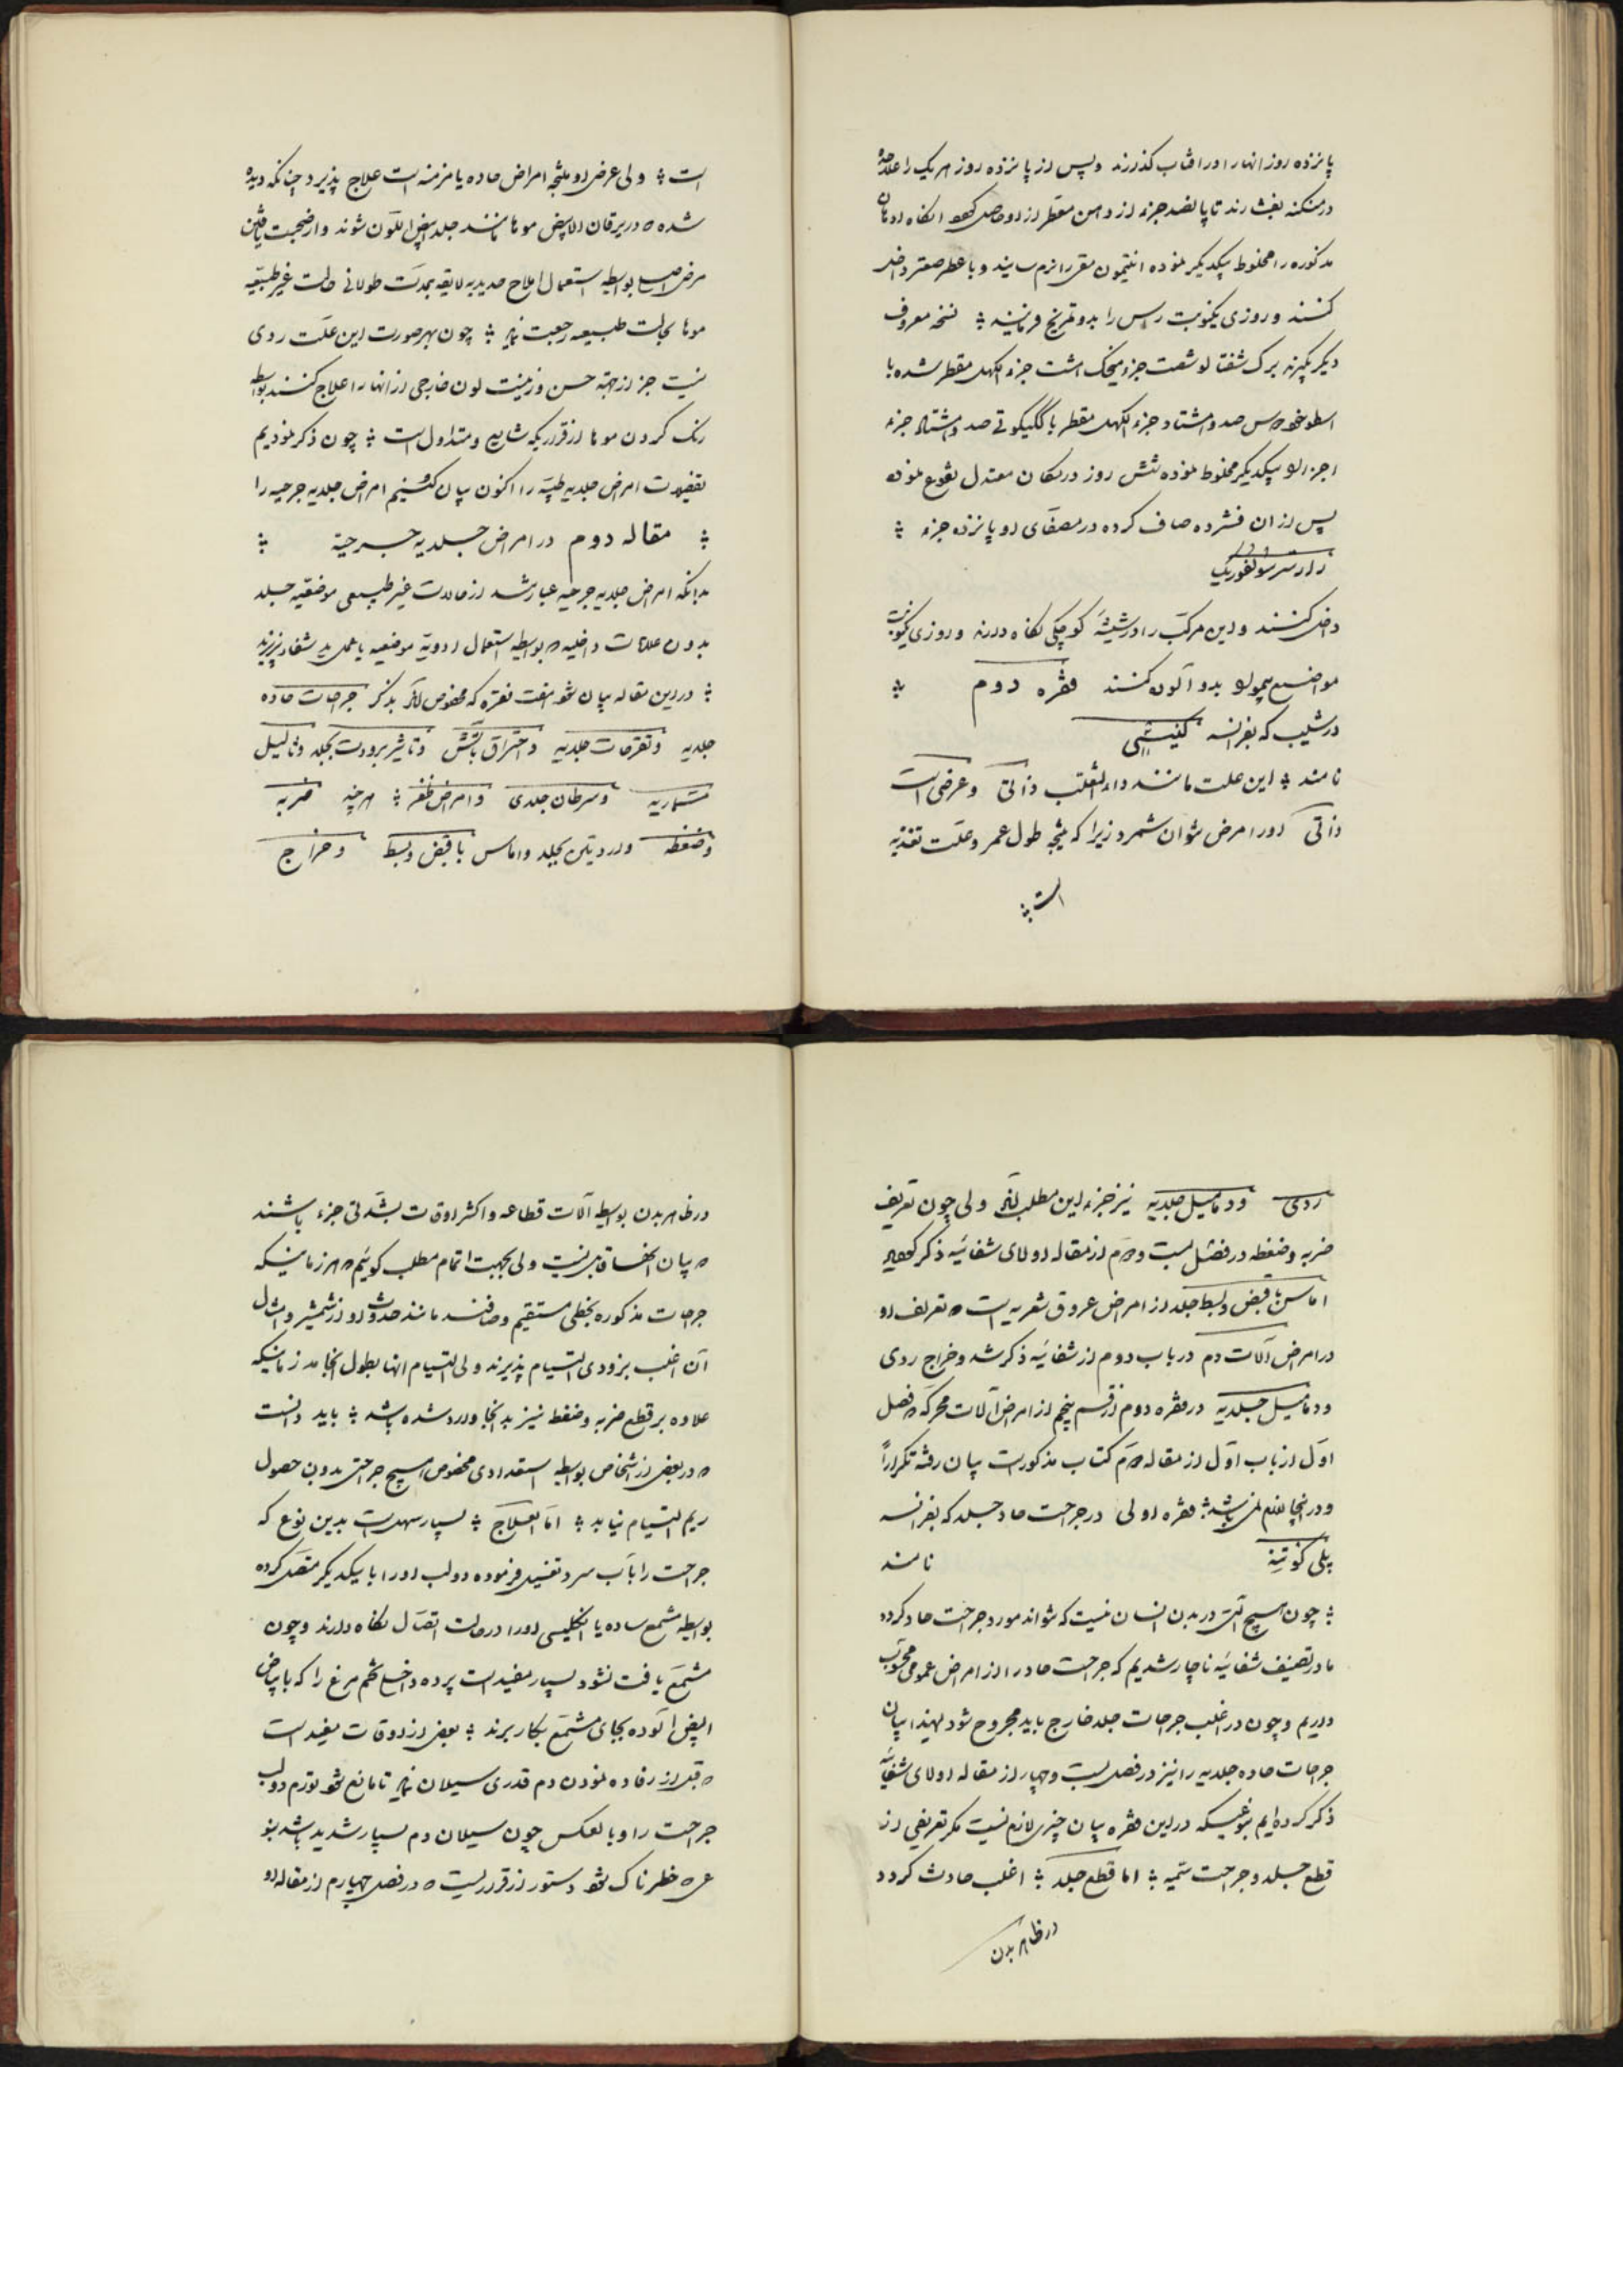 پانزده روز انها را در افتاب گذارند و پس از پانزده روز هر یک را علاحده
در منگنه بفشارند تا پانصد جزء از دهن مقطر از او حاصل شود انگاه ادهان
مذکوره را مخلوط بیکدیگر نموده انتیمون مقرر را نرم سایند و با عطر صعتر داخل
کنند و روزی یکنوبت راس را بدو تمریخ فرمایند ؞ نسخه معروف
دیگر بگیرند برک شفتالو شصت جزء میخک هشت جزء الکهل مقطر شده با
اسطوخودوس صد و هشتاد جزء الکهل مقطر با کلیکوتی صد و هشتاد جزء
اجزا را بیکدیگر مخلوط نموده شش روز در مکان معتدل نقوع نموده
پس از ان فشرده صاف کرده در مصفای او پانزده جزء ؞
اتر سولفوریک
داخل کنند و این مرکب را در شیشهٔ کوچکی نگاه دارند و روزی یکنوبت
مواضع بیمو را بدو آلوده کنند فقره دوم ؞
در شیب که بفرانسه کنیسی
نامند ؞ این علت مانند داء الثعلب ذاتی و عرضی است
ذاتی او را مرض نتوان شمرد زیرا که نتیجه طول عمر و علت تغذیه
است ؞
است ؞ ولی عرضی او نتیجه امراض حاده یا مزمنه است علاج پذیرد چنانکه دیده
شده که در یرقان الابیض موها مانند جلد ابیض اللون شوند و از صحبت یافتن
مرض اصلی بواسطه استعمال املاح حدیدیه لایقه بمدت طولانی حالت غیر طبیعیه
موها بحالت طبیعیه رجعت نماید ؞ چون بهر صورت این علت ردی
نیست جز از جهته حسن و زینت لون خارجی از انها را علاج کنند بواسطه
رنک کردن موها از قراریکه شایع و متداول است ؞ چون ذکر نمودیم
تفصیلات امراض جلدیه طبیه را اکنون بیان کنیم امراض جلدیه جرحیه را
؞ مقاله دوم در امراض جلدیه جرحیة ؞
بدانکه امراض جلدیه جرحیه عبارتند از حالات غیر طبیعی موضعیه جلد
بدون علامات داخلیه که بواسطه استعمال ادویه موضعیه یا عمل ید شفا پذیرند
؞ در این مقاله بیان شود هفت فقره که مخصوص اند بذکر جراحات حاده
جلدیه و تقرحات جلدیه و احتراق باتش و تاثیر برودت بجلد و ثالیل
مسماریه و سرطان جلدی و امراض ظفر ؞ هر چند ضربه
و ضغطه وارد یتن بجلد و اماس با قبض و بسط و خراج
ردی و دمامیل جلدیه نیز جزء این مطلب اند ولی چون تعریف
ضربه و ضغطه در فصل بیست و دوم از مقاله اولای شفائیه ذکر نمودیم
اماس با قبض و بسط جلد از امراض عروق شعریه است که تعریف او
در امراض آلات دم در باب دوم از شفائیه ذکر شد و خراج ردی
و دمامیل جلدیه در فقره دوم از قسم پنجم از امراض آلات محرکه در فصل
اول از باب اول از مقاله دوم کتاب مذکور است بیان رفته تکراراً
در اینجا لازم نمی‌باشد ؞ فقره اولی در جراحت حاد جلد که بفرانسه
پلی کوتنه نامند
؞ چون هیچ آلتی در بدن انسان نیست که نتواند مورد جراحت حاد کردد
ما در تصنیف شفائیه ناچار شدیم که جراحت حاد را از امراض عمومی محسوب
داریم و چون در اغلب جراحات جلد خارج باید مجروح شود لهذا بیان
جراحات حاده جلدیه را نیز در فصل بیست و چهار از مقاله اولای شفائیه
ذکر کرده‌ایم بنوعیکه در این فقره بیان چیزی لازم نیست مکر تعریفی از
قطع جلد و جراحت سمیه ؞ اما قطع جلد ؞ اغلب حادث کردد
در ظاهر بدن
در ظاهر بدن بواسطه آلات قطاعه و اکثر اوقات بشدتی جزء باشند
که بیان انها قابل نیست ولی بجهت اتمام مطلب کوئیم که هر زمانیکه
جراحات مذکوره بخطی مستقیم و صافند مانند حدوث او از شمشیر و امثال
آن اغلب بزودی التیام پذیرند ولی التیام انها بطول انجامد زمانیکه
علاوه بر قطع ضربه و ضغط نیز بدانجا وارد شده باشد ؞ باید دانست
که در بعض اشخاص بواسطه استعدادی مخصوص هیچ جراحتی بدون حصول
ریم التیام نیابد ؞ اما العلاج ؞ بسیار سهل است بدین نوع که
جراحت را باب سرد تغسیل فرموده دو لب او را با یکدیکر متصل کرده
بواسطه مشمع ساده یا انکلیسی او را در حالت اتصال نگاه دارند و چون
مشمع یافت نشود بسیار مفید است پرده داخل تخم مرغ را که با بیاض
البیض آلوده بجای مشمع بکار برند ؞ بعض از اوقات مفید است
که قبل از رفاده نمودن دم قدری سیلان نماید تا مانع شود تورم دو لب
جراحت را و بالعکس چون سیلان دم بسیار شدید باشد بنو
عی که خطرناک شود دستور از قراریست که در فصل چهارم از مقاله او